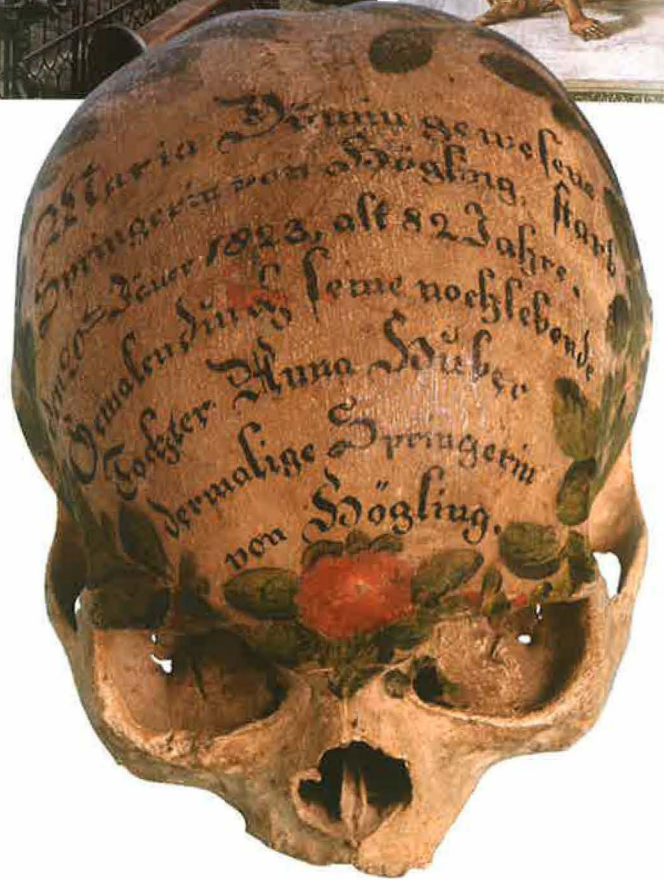 Maria Dumin gewesene
Springerin von Högling, starb
den 20ten Jäner 1823, alt 82 Jahre.
Gemalen durch seine nochlebende
Tochter Anna Huber
dermalige Springerin
von Högling.